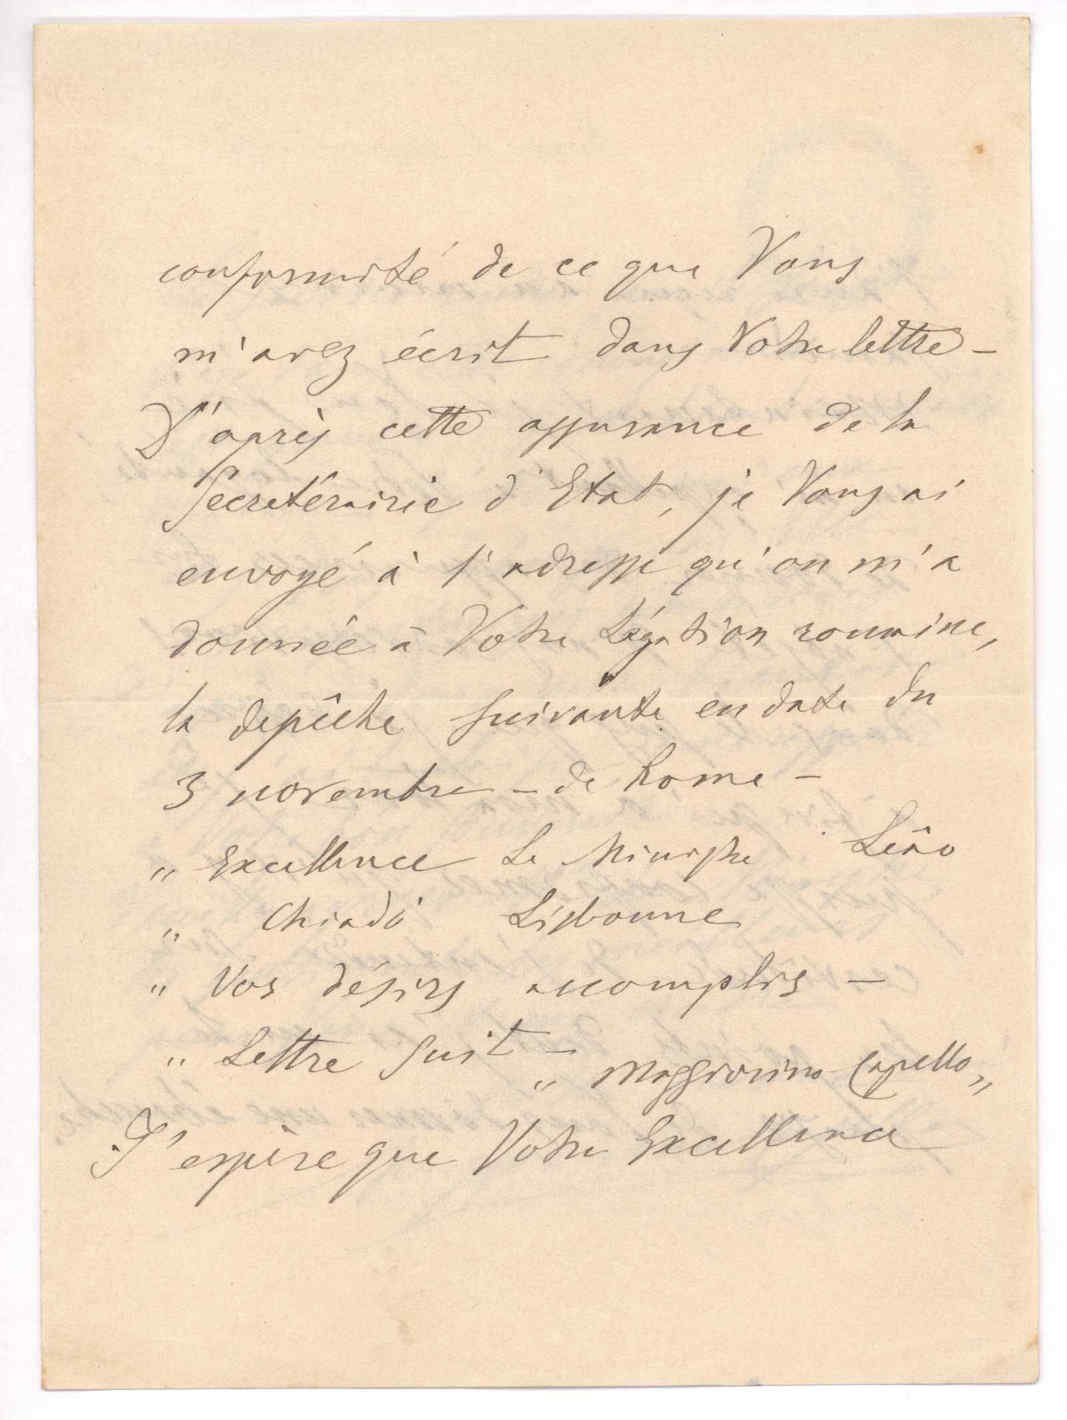 conformité de ce que Vous
m'avez écrit dans Votre lettre –
D'après cette assurance de la
Secretérairie d'Etat, je Vous ai
envoyé à l'adresse qu'on m'a
donnée à Votre Légation roumine,
la depêche suivante en date du
3 novembre – de Rome –
„ Excellence Le Ministre Leão
„ Chiado Lisbonne
„ Vos désirs accomplis –
„ Lettre suit –
„ Maggiorino Capello „
J'espère que Votre Excellence